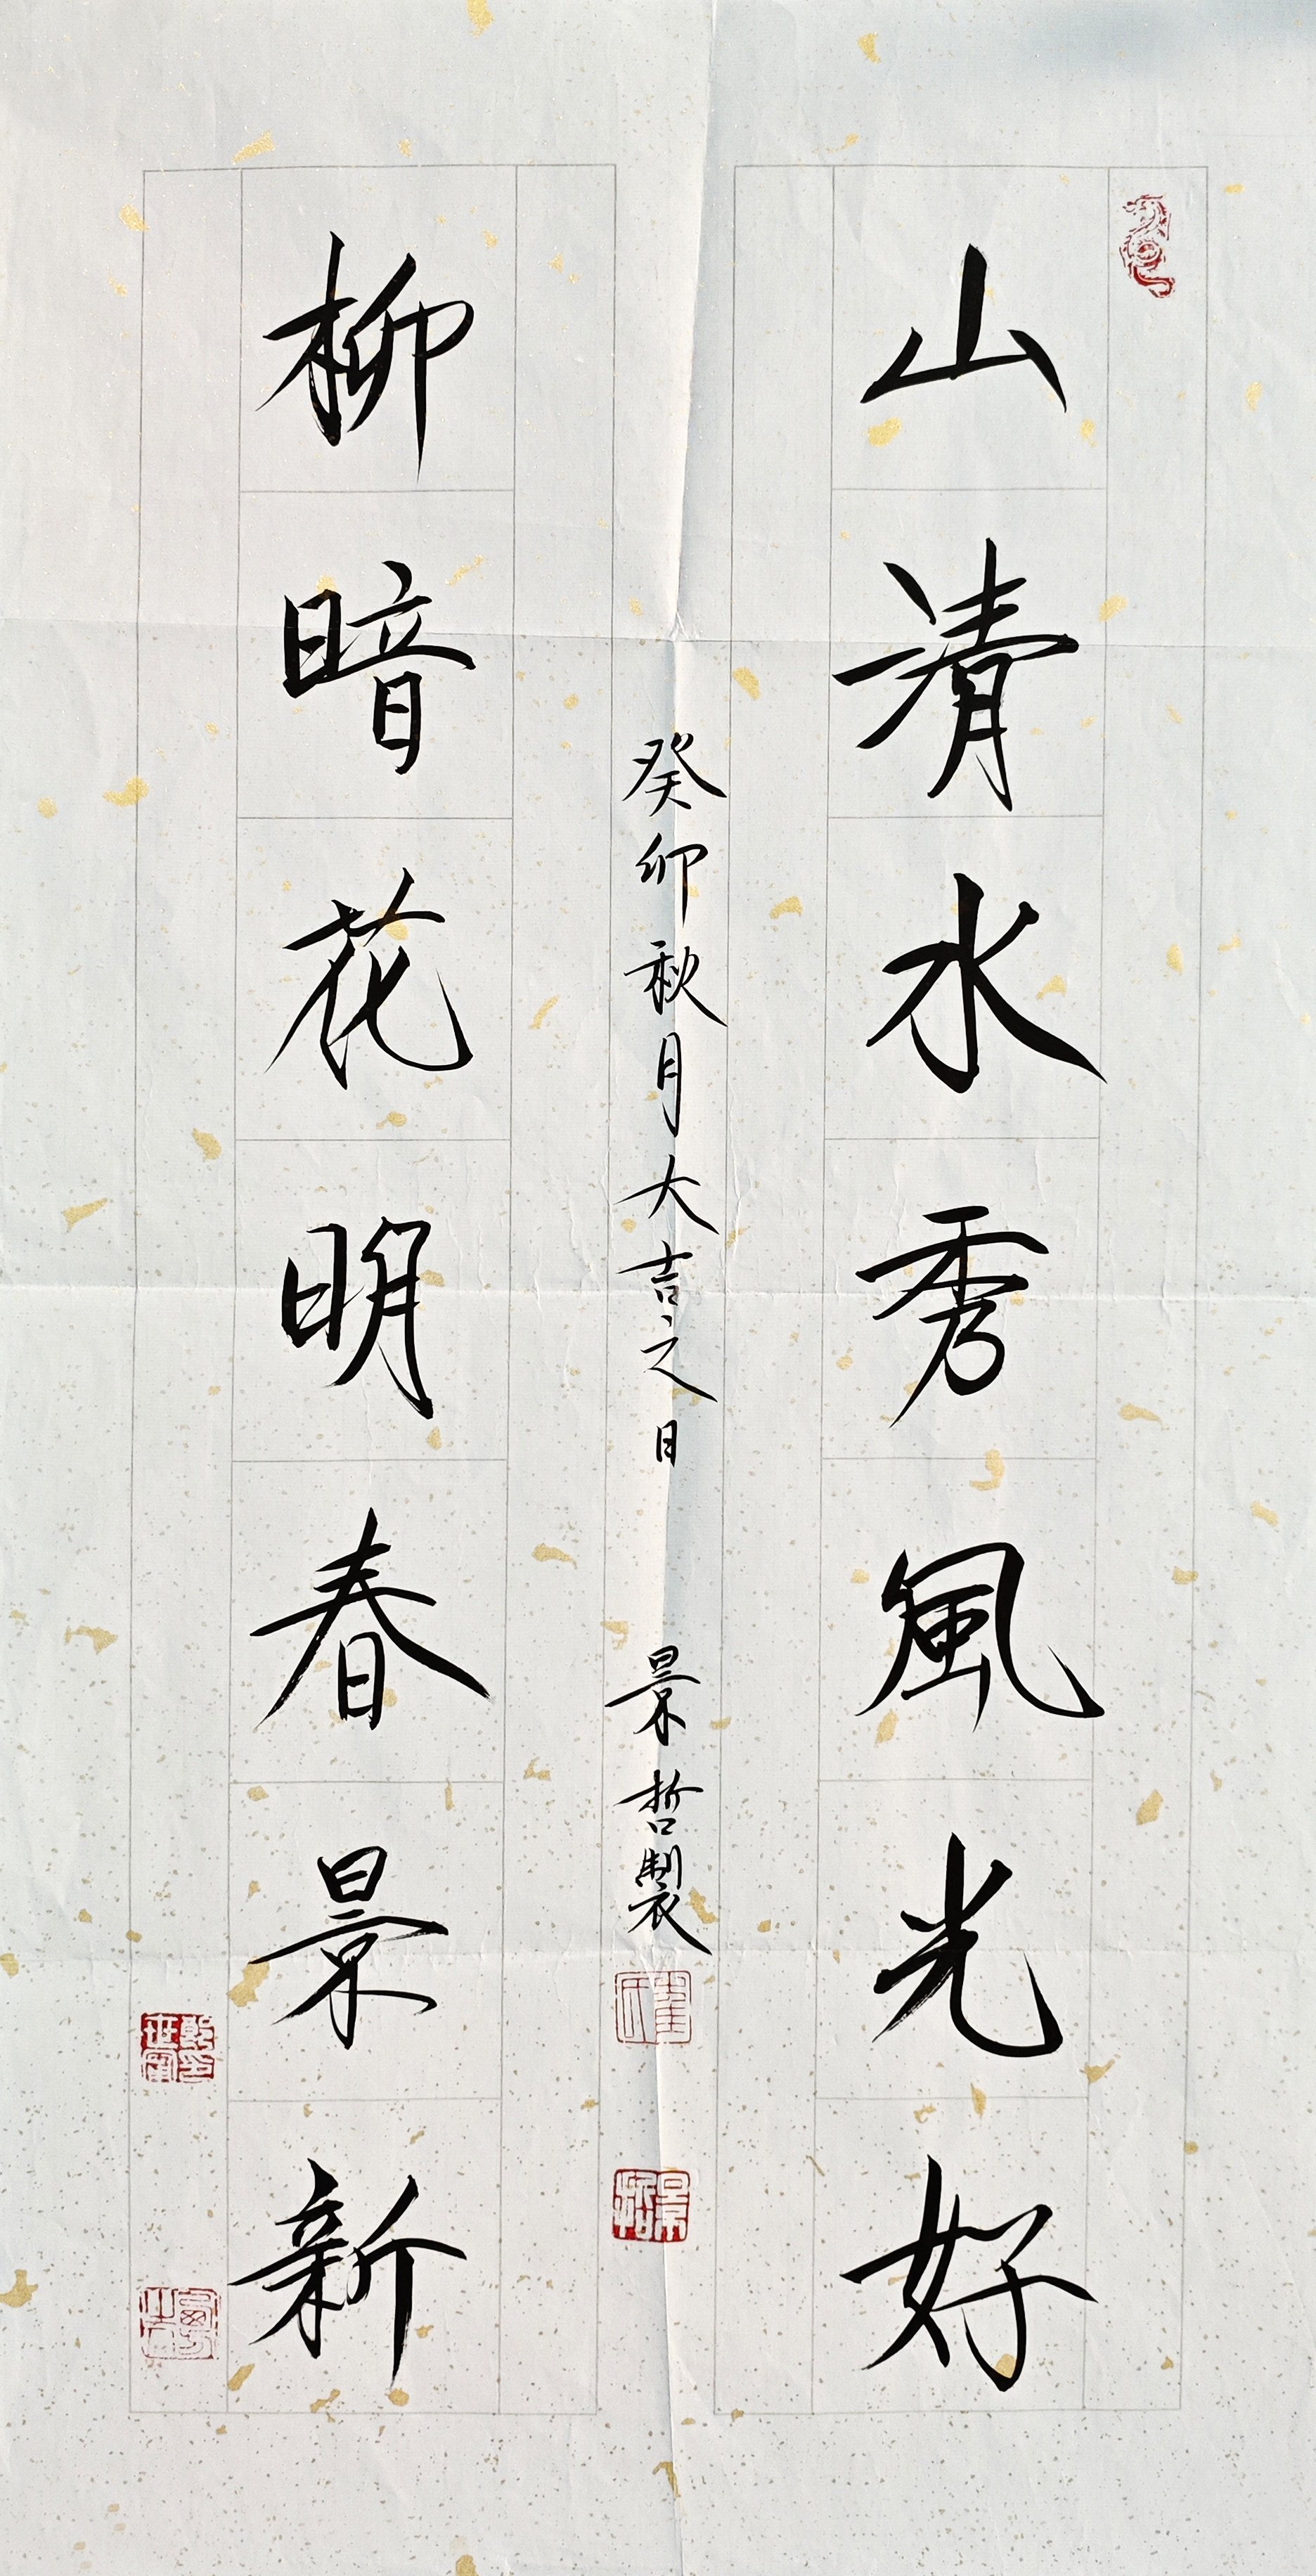 山清水秀風光好
癸卯秋月大吉之日 景哲製
柳暗花明春景新